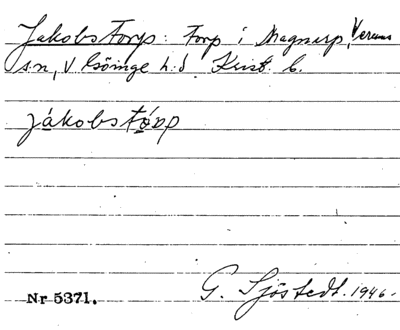 Jakobstorp: Torp i Magnarp, Verums
sn, V Göinge h:d. Krist. l.
jákobstórp
G. Sjöstedt. 1946.
Nr 5371.